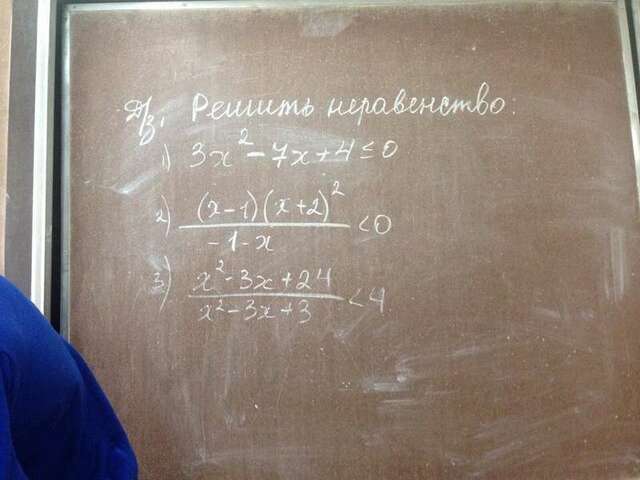 Д/з. Решить неравенство:
1) 3x² - 7x + 4 ≤ 0
2) (x-1)(x+2)² / -1-x < 0
3) x² - 3x + 24 / x² - 3x + 3 < 4